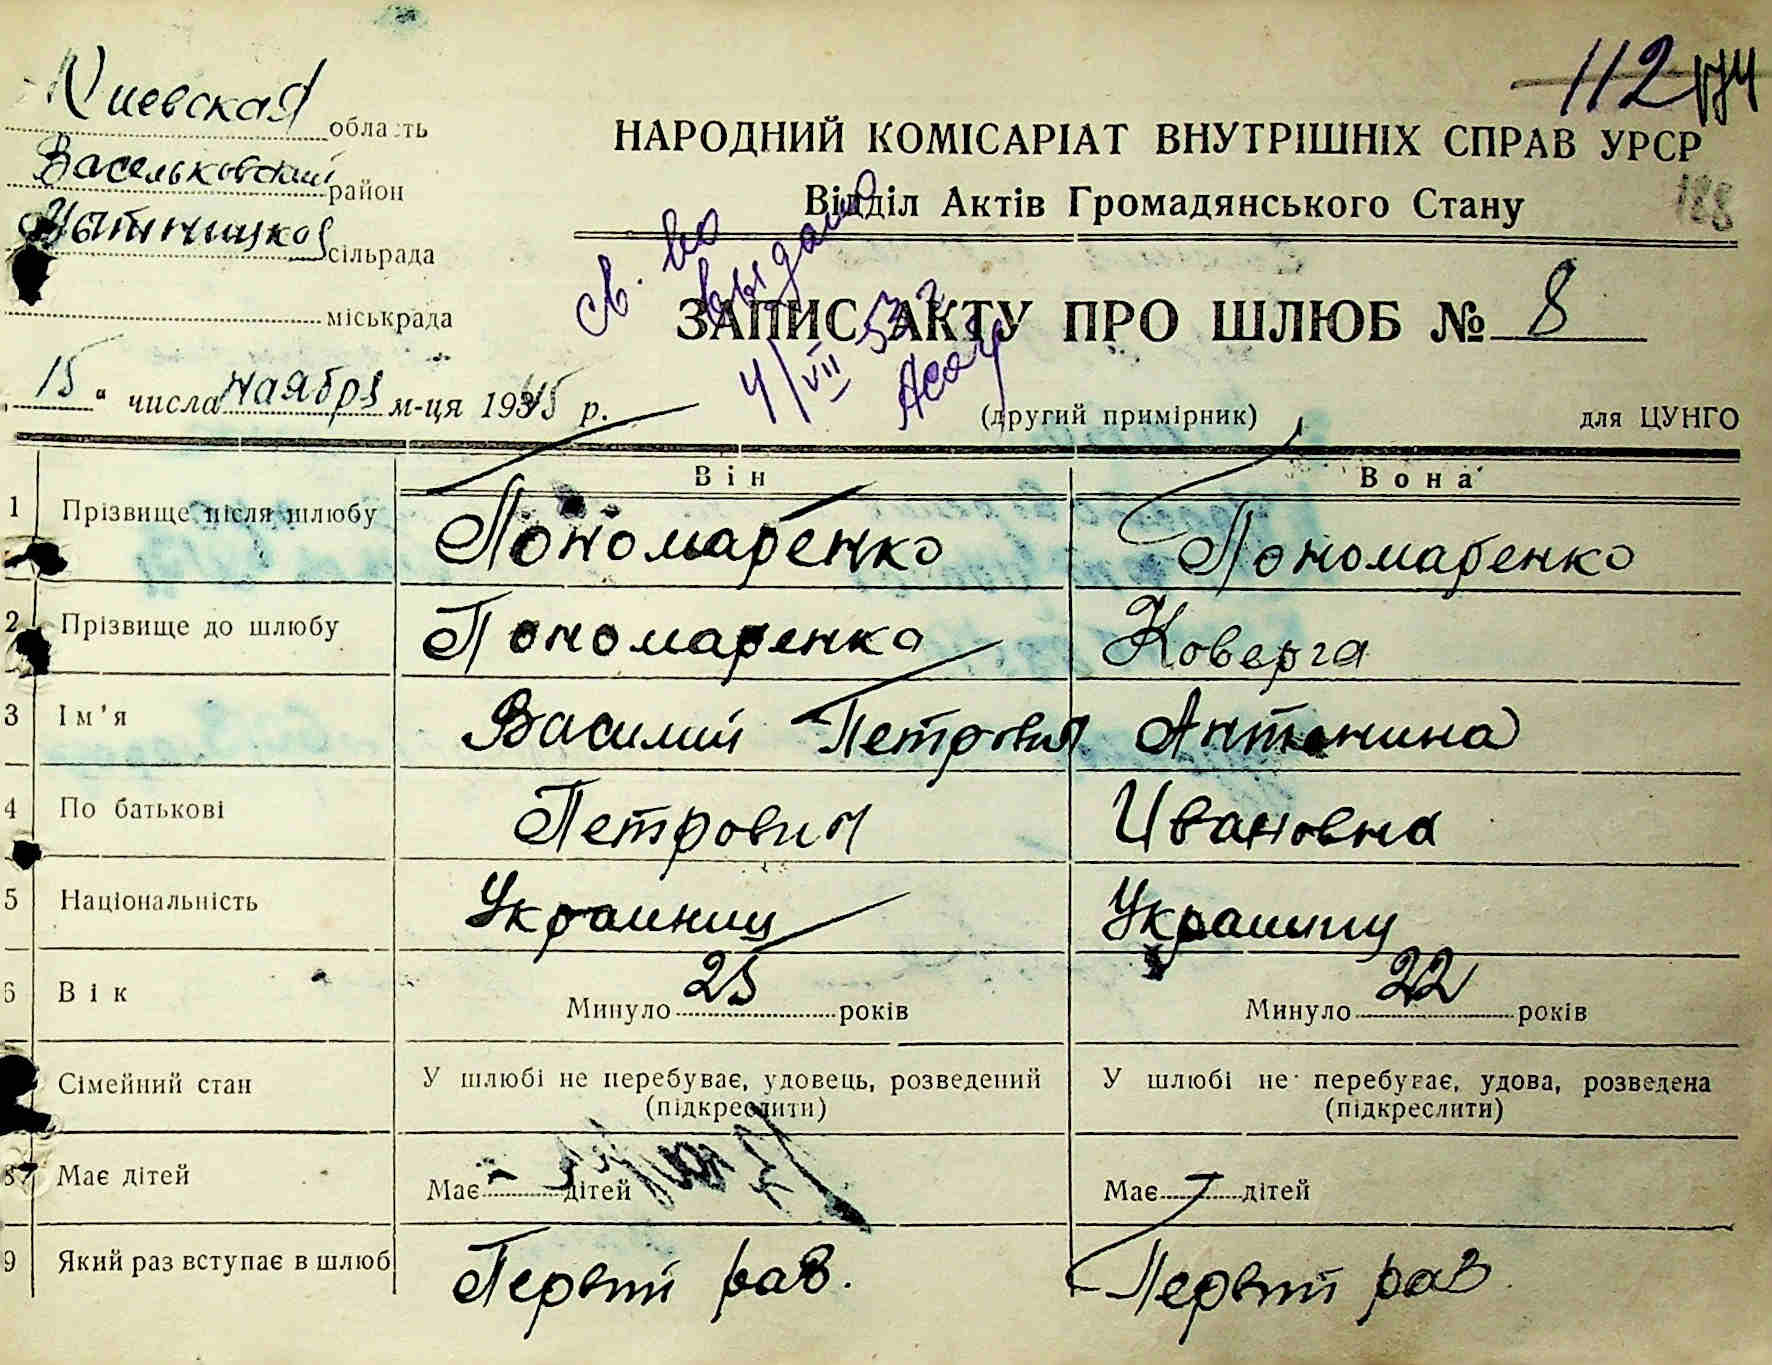 112 174
Киевская область
Васельковский район
сільрада
міськрада
НАРОДНИЙ КОМІСАРІАТ ВНУТРІШНІХ СПРАВ УРСР
Відділ Актів Громадянського Стану
188
св. во
выдано
4/VII 53 г
ЗАПИС АКТУ ПРО ШЛЮБ № 8
15 " числа ноября м-ця 1945 р.
(другий примірник) для ЦУНГО
Він Вона
1 Прізвище після шлюбу Пономаренко Пономаренко
2 Прізвище до шлюбу Пономаренко Коверга
3 Ім'я Василий Петрович Антонина
4 По батькові Петрович Ивановна
5 Національність Украинец Украинцы
6 Вік Минуло 25 років Минуло 22 років
Сімейний стан У шлюбі не перебуває, удовець, розведений У шлюбі не перебуває, удова, розведена
(підкреслити) (підкреслити)
8 Має дітей Має - дітей Має - дітей
9 Який раз вступає в шлюб Первый раз. Первый раз.